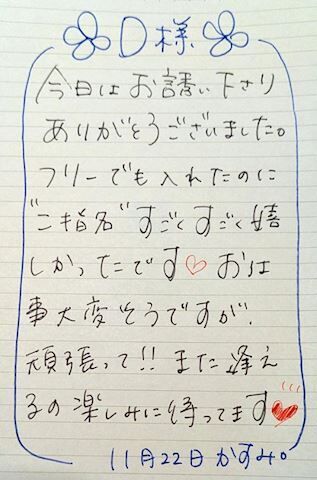 D様
今日はお誘い下さり
ありがとうございました。
フリーでも入れたのに
"ご指名"すごくすごく嬉
しかったです♡ おは
事大変そうですが、
頑張って!! また逢え
るの楽しみに待ってます♥
11月22日 かすみ。